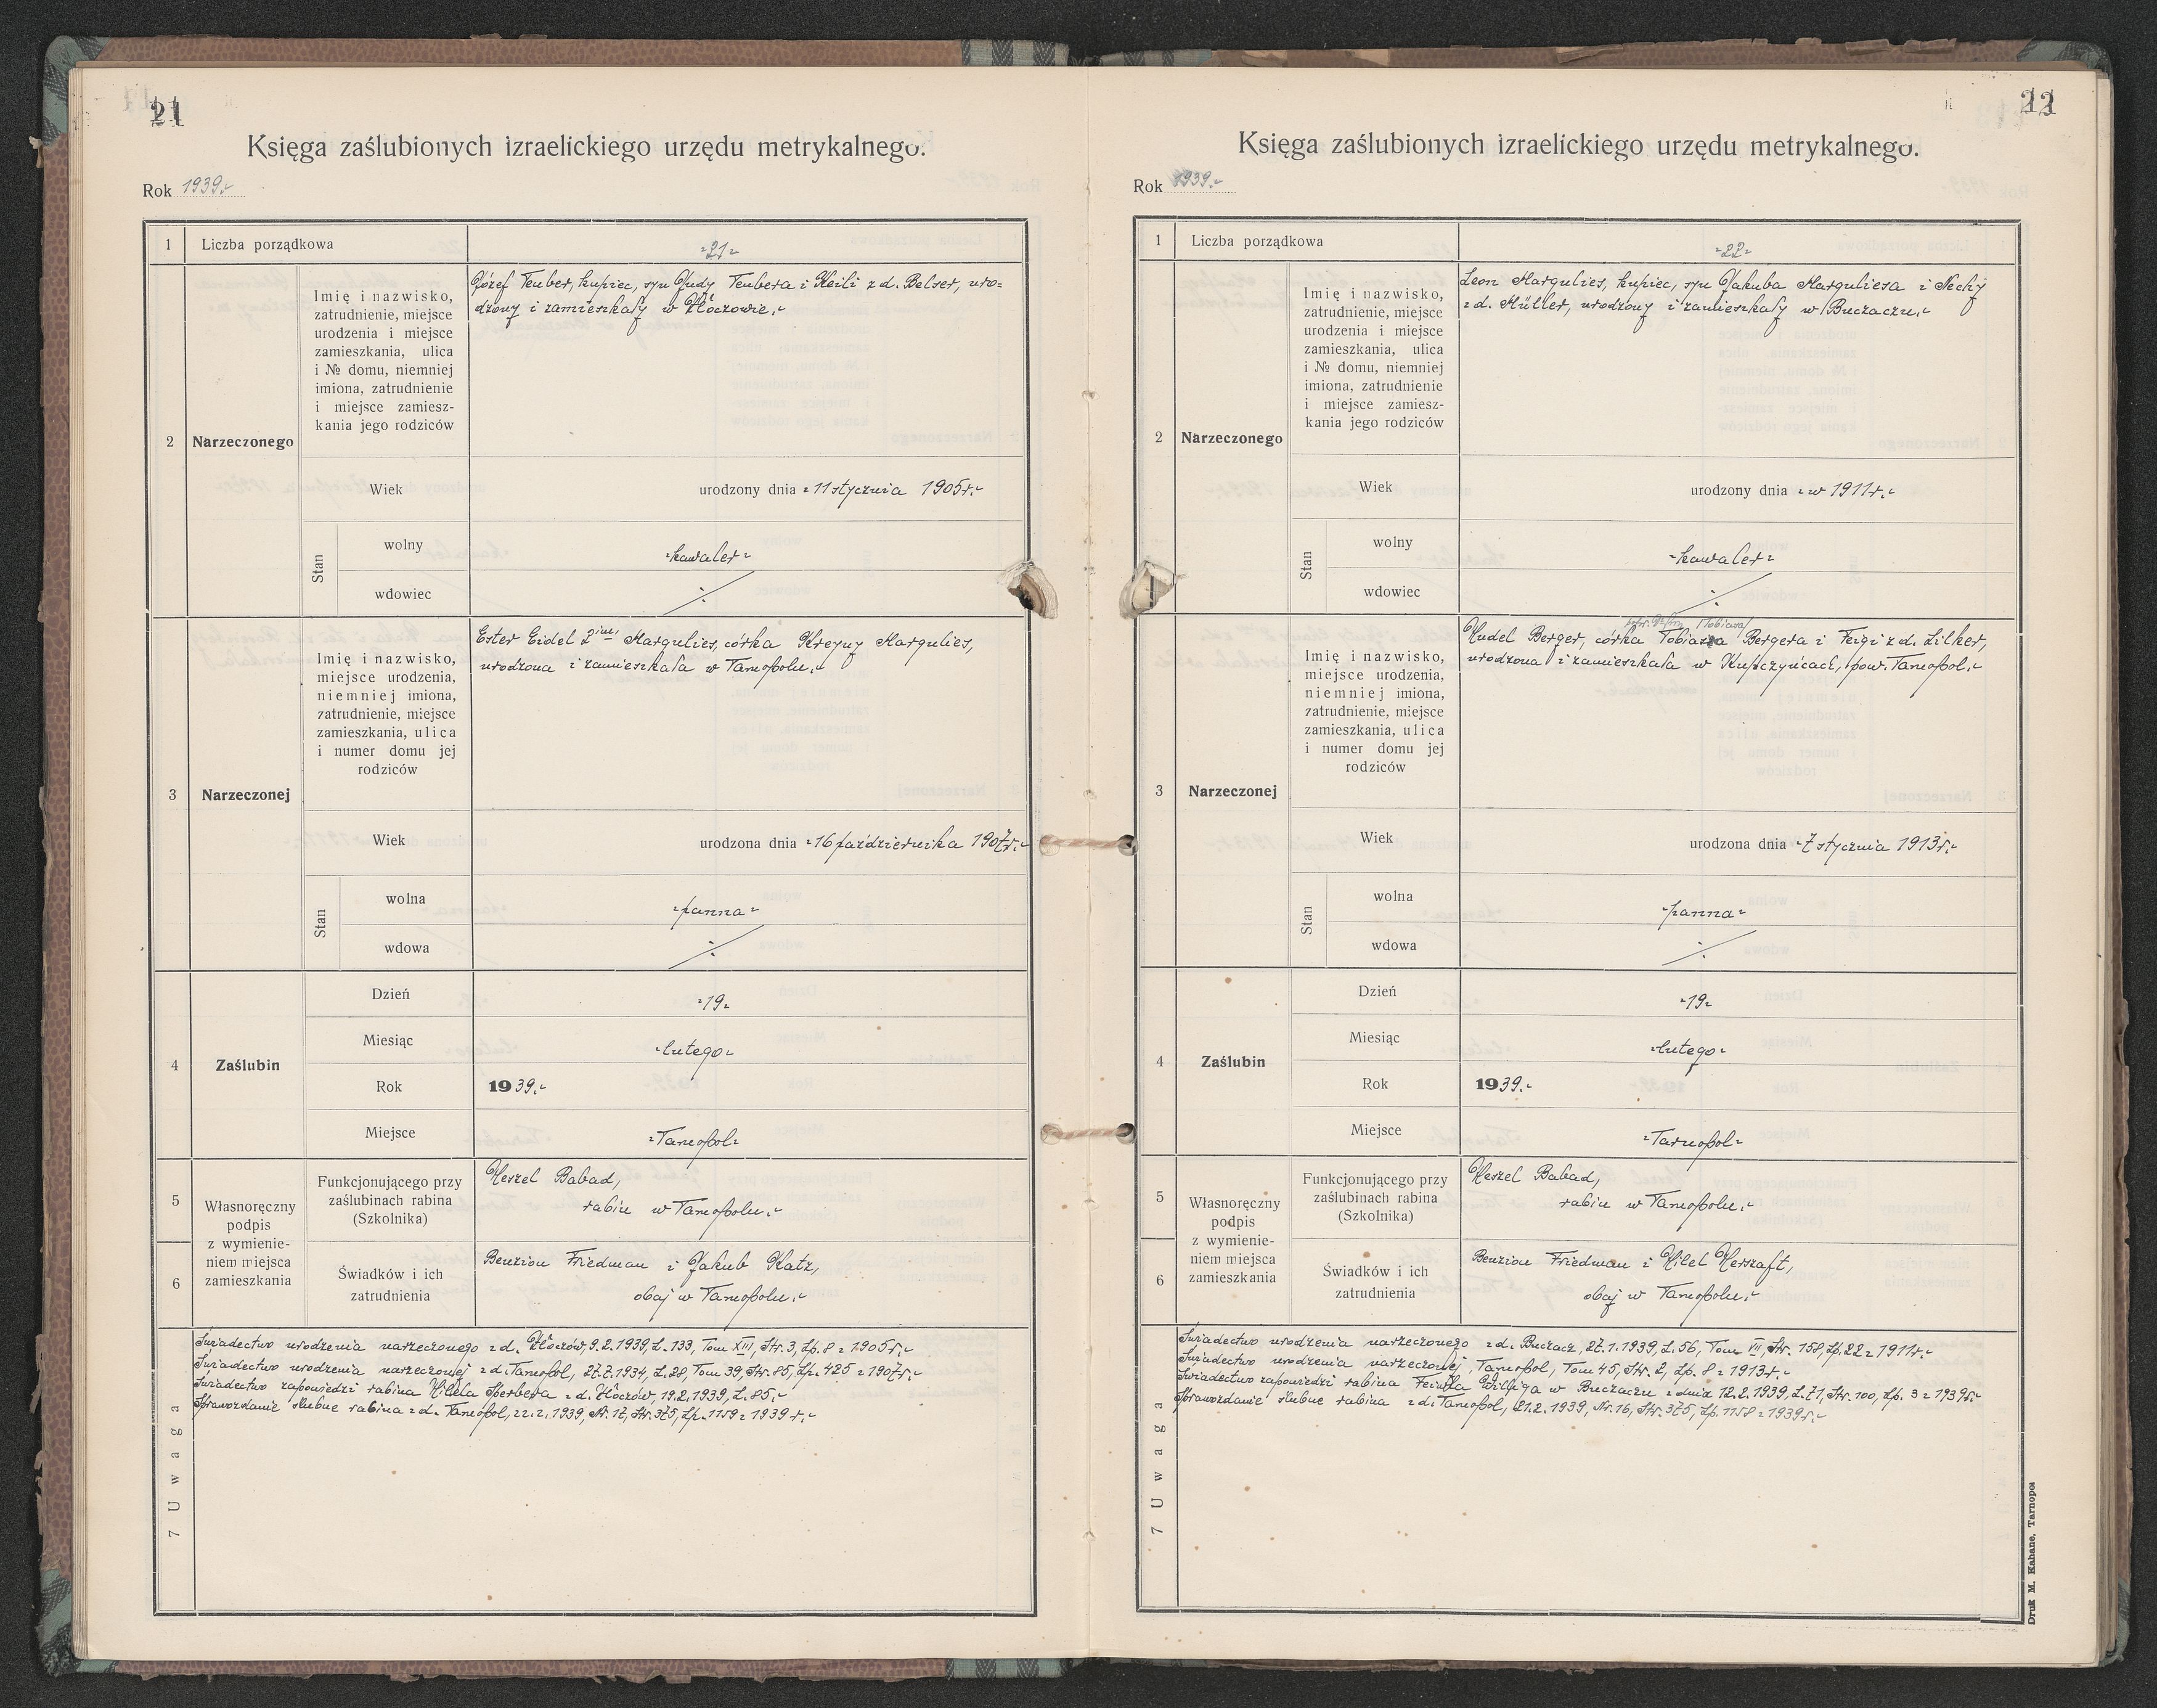 21
Księga zaślubionych izraelickiego urzędu metrykalnego.
Rok 1939.-
1 Liczba porządkowa -21-
2 Narzeczonego
Imię i nazwisko,
zatrudnienie, miejsce
urodzenia i miejsce
zamieszkania, ulica
i № domu, niemniej
imiona, zatrudnienie
i miejsce zamiesz-
kania jego rodziców
Józef Teuber, kupiec, syn Judy Teubera i Keili z d. Belser, uro=
dzony i zamieszkały w Złoczowie.-
Wiek urodzony dnia -11 stycznia 1905r.-
Stan
wolny -kawaler-
wdowiec ⁒
3 Narzeczonej
Imię i nazwisko,
miejsce urodzenia,
niemniej imiona,
zatrudnienie, miejsce
zamieszkania, ulica
i numer domu jej
rodziców
Ester Eidel 2im. Margulies, córka Kreyny Margulies,
urodzona i zamieszkała w Tarnopolu.-
Wiek urodzona dnia -16 października 1907r.-
Stan
wolna -panna-
wdowa ⁒
4 Zaślubin
Dzień -19-
Miesiąc -lutego-
Rok 1939.-
Miejsce -Tarnopol-
5
6
Własnoręczny
podpis
z wymienie-
niem miejsca
zamieszkania
Funkcjonującego przy
zaślubinach rabina
(Szkolnika)
Herzel Babad,
rabin w Tarnopolu.-
Świadków i ich
zatrudnienia
Benzion Friedman i Jakub Katz,
obaj w Tarnopolu.-
7 Uwaga
Świadectwo urodzenia narzeczonego z d. Złoczów, 9.2.1939, L. 133, Tom XIII, Str. 3, Lp. 8 z 1905r.-
Świadectwo urodzenia narzeczonej z d. Tarnopol, 27.7.1934, L. 28, Tom 39, Str. 85, Lp. 425 z 1907r.-
Świadectwo zapowiedzi rabina Hillela Sperbera z d. Złoczów, 19.2.1939, L. 85.-
Sprawozdanie ślubne rabina z d. Tarnopol, 22.2.1939, Nr. 17, Str. 375, Lp. 1159 z 1939 r.-
22
Księga zaślubionych izraelickiego urzędu metrykalnego.
Rok 1939.-
1 Liczba porządkowa -22-
2 Narzeczonego
Imię i nazwisko,
zatrudnienie, miejsce
urodzenia i miejsce
zamieszkania, ulica
i № domu, niemniej
imiona, zatrudnienie
i miejsce zamiesz-
kania jego rodziców
Leon Margulies, kupiec, syn Jakuba Marguliesa i Nechy
z d. Müller, urodzony i zamieszkały w Buczaczu.-
Wiek urodzony dnia -w 1911r.-
Stan
wolny -kawaler-
wdowiec ⁒
3 Narzeczonej
Imię i nazwisko,
miejsce urodzenia,
niemniej imiona,
zatrudnienie, miejsce
zamieszkania, ulica
i numer domu jej
rodziców
/Tobiasa/
Hudel Berger, córka Tobiasza Bergera i Feigi z d. Lilker,
urodzona i zamieszkała w Kupczyńcach, pow. Tarnopol.-
Wiek urodzona dnia -7 stycznia 1913r.-
Stan
wolna -panna-
wdowa ⁒
4 Zaślubin
Dzień -19-
Miesiąc -lutego-
Rok 1939.-
Miejsce -Tarnopol-
5
6
Własnoręczny
podpis
z wymienie-
niem miejsca
zamieszkania
Funkcjonującego przy
zaślubinach rabina
(Szkolnika)
Herzel Babad,
rabin w Tarnopolu.-
Świadków i ich
zatrudnienia
Benzion Friedman i Hilel Herszaft,
obaj w Tarnopolu.-
7 Uwaga
Świadectwo urodzenia narzeczonego z d. Buczacz, 27.1.1939, L. 56, Tom VII, Str. 158, Lp. 22 z 1911r.-
Świadectwo urodzenia narzeczonej, Tarnopol, Tom 45, Str. 2, Lp. 8 z 1913r.-
Świadectwo zapowiedzi rabina w Buczaczu z dnia 12.2.1939, L. 71, Str. 100, Lp. 3 z 1939r.-
Sprawozdanie ślubne rabina z d. Tarnopol, 21.2.1939, Nr. 16, Str. 375, Lp. 1158 z 1939r.-
Druk M. Kahane, Tarnopol